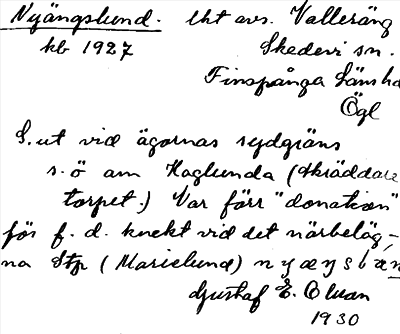 Nyängslund. Uht avs. Valleräng
kb 1927 Skedevi sn.
Finspånga länshd
Ögl
L. ut vid ägornas sydgräns
s.ö om Haglunda (Skräddare
torpet.) Var förr "donation"
för f. d. knekt vid det närbeläg-
na Stp (Marielund)
Gustaf E. Olsson
1930